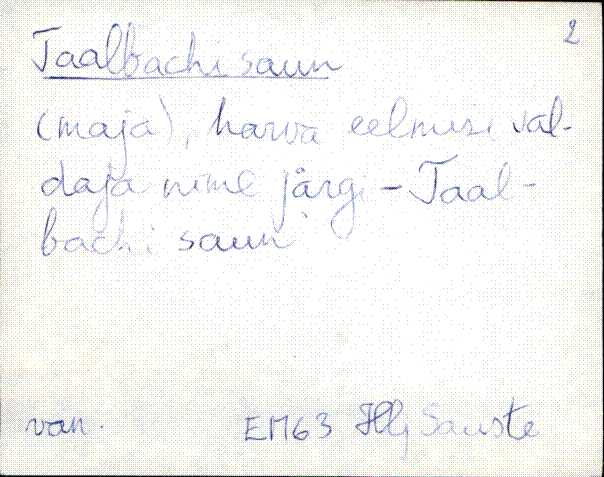 2
Taalbachi saun
(maja), harva eelmise val-
daja nime järgi - Taal-
bachi saun
van.
EM63 Hlj Sauste